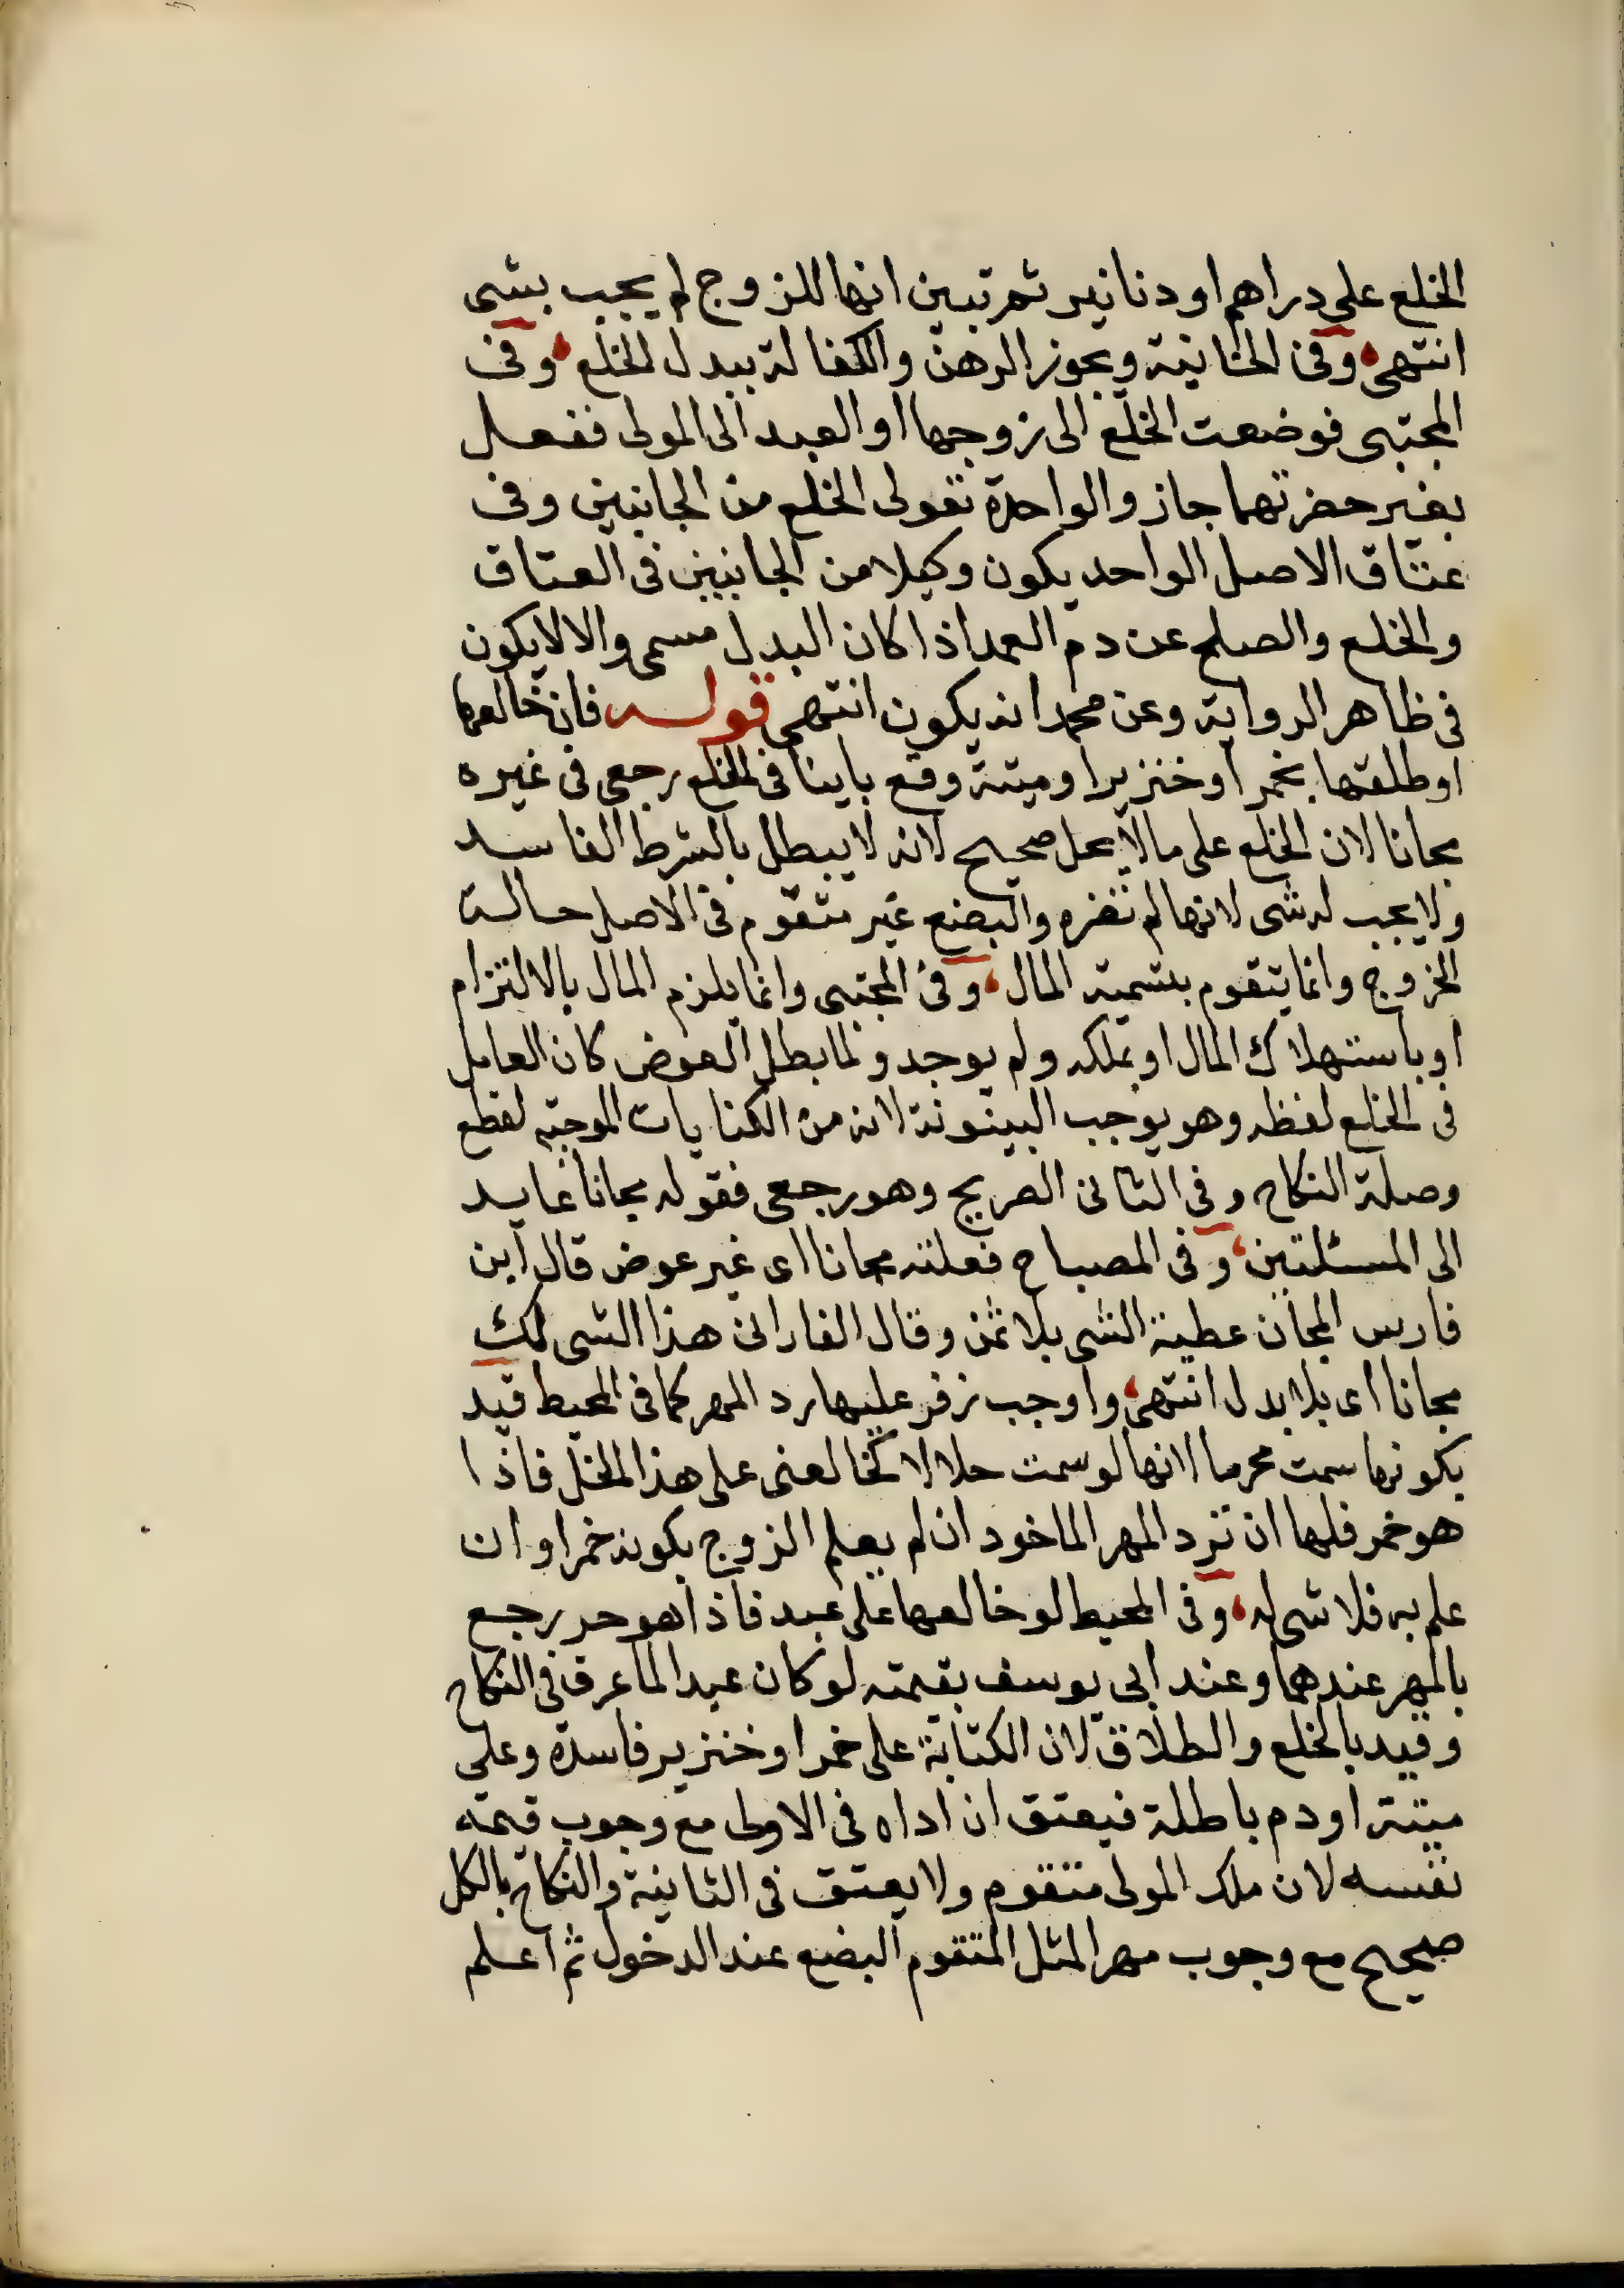 الخلع على دراهم او دنانير ثم تبين انها للزوج لم يجب بشى
انتهى وفى الخانية ويجوز الرهن والكفالة ببدل الخلع وفى
المجتبى فوضعت الخلع الى زوجها او العبد الى المولى ففعل
بغير حضرتهما جاز والواحدة تقولى الخلع من الجانبين وفى
عتاق الاصل الواحد يكون وكيلا من الجانبين فى العتاق
والخلع والصلح عن دم العمد اذا كان البدل مسمى والا لا يكون
فى ظاهر الرواية وعن محمد انه يكون انتهى قوله فان خالعها
او طلقها بخمر او خنزير او ميتة وقع باينا فى الخلع رجعى فى غيره
مجانا لان الخلع على مالا يحل صحيح لانه لا يبطل بالشرط الفاسد
ولا يجب له شى لانها لم تغره والبضع غير متقوم فى الاصل حالة
الخروج وانما يتقوم بتسمية المال وفى المجتبى وانما يلزم المال بالالتزام
او باستهلاك المال او بملكه ولم يوجد ولما بطل العوض كان العامل
فى الخلع لفظه وهو يوجب البينونة لانه من الكنايات الموجبة لقطع
وصلة النكاح وفى الثانى الصريح وهو رجعى فقوله مجانا عايد
الى المسئلتين وفى المصباح فعلته مجانا اى غير عوض قال ابن
فارس المجان عطية الشى بلا ثمن وقال الفارابى هذا الشى لك
مجانا اى بلا بدل انتهى واوجب زفر عليها رد المهر كما فى المحيط قيد
بكونها سمت محرما لانها لو سمت حلالا كخالعنى على هذا الخل فاذا
هو خمر فلها ان ترد المهر الماخوذ ان لم يعلم الزوج بكونه خمرا وان
علم به فلا شى له وفى المحيط لو خالعها على عبد فاذا هو حر رجع
بالمهر عندهما وعند ابى يوسف بقيمته لو كان عبدا لما عرف فى النكاح
وقيد بالخلع والطلاق لان الكتابة على خمر او خنزير فاسدة وعلى
ميتة او دم باطلة فيعتق ان اداه فى الاولى مع وجوب قيمة
نفسه لان ملك المولى متقوم ولا يعتق فى الثانية والنكاح بالكل
صحيح مع وجوب مهر المثل المتقوم البضع عند الدخول ثم اعلم